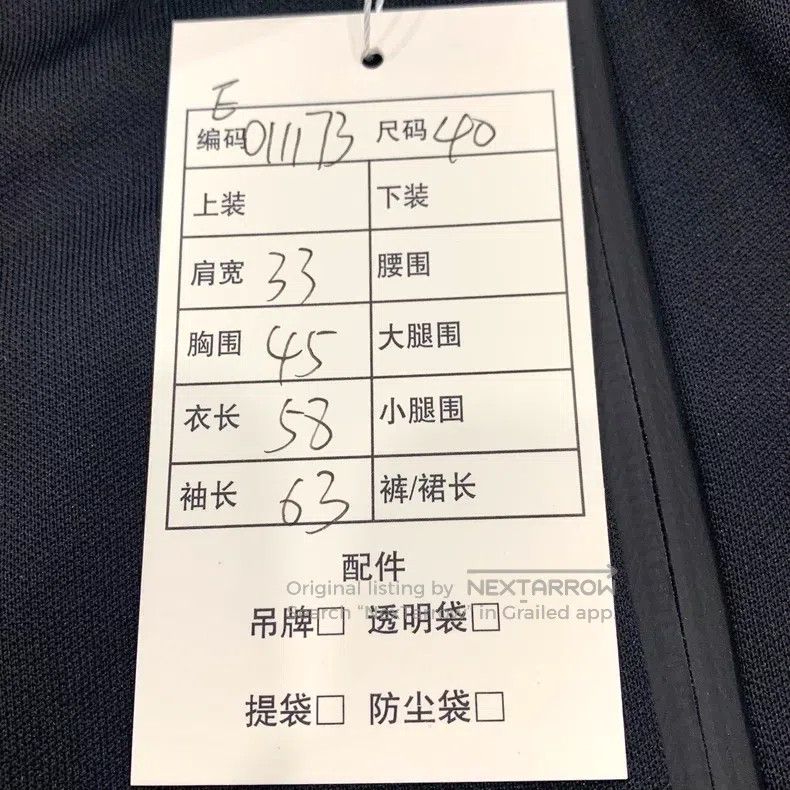 E
编码 011173 尺码 40
上装 下装
肩宽 33 腰围
胸围 45 大腿围
衣长 58 小腿围
袖长 63 裤/裙长
配件
Original listing by NEXTARROW
Search "NEXTARROW" in Grailed app.
吊牌□ 透明袋□
提袋□ 防尘袋□